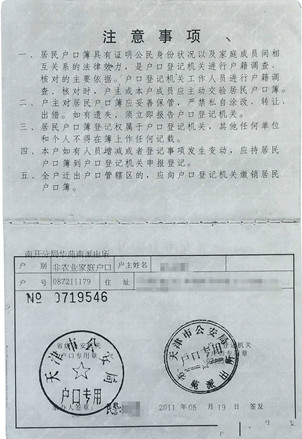 注意事项
一、居民户口簿具有证明公民身份状况以及家庭成员间相
互关系的法律效力,是户口登记机关进行户籍调查、
核对的主要依据。户口登记机关工作人员进行户籍调
查、核对时,户主或本户成员应主动交验居民户口簿。
二、户主对居民户口簿应妥善保管,严禁私自涂改、转让、
出借。如有遗失,须立即报告户口登记机关。
三、居民户口簿登记权属于户口登记机关,其他任何单位
和个人不得在簿上作任何记载。
四、本户如有人员增减或者登记事项发生变动,应持居民
户口簿到户口登记机关申报登记。
五、全户迁出户口管辖区的,应向户口登记机关缴销居民
户口簿。
户别 非农业家庭户口 户主姓名
户号 087211179 住址
№ 0719546
户口专用章
天津市公安局
户口专用
天津市公安局
户口专用
派出所
2011 年 08 月 19 日 签发